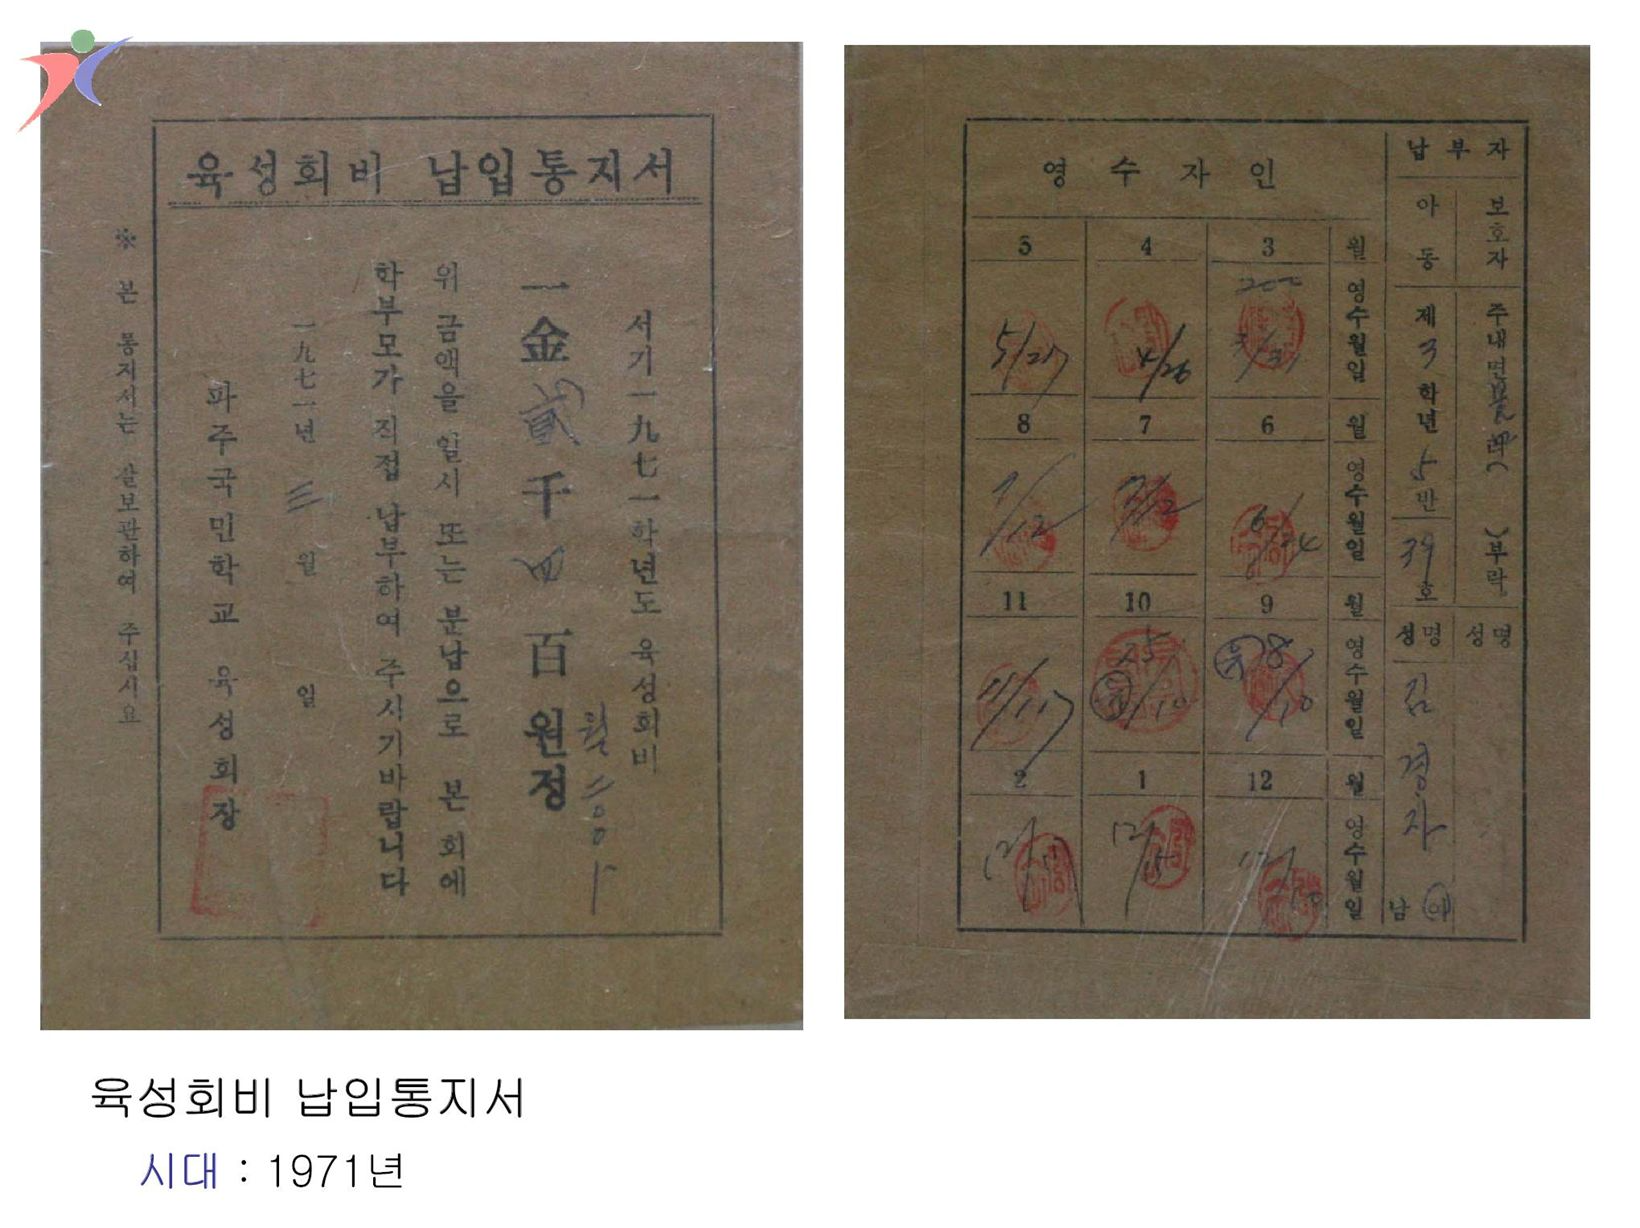 육성회비 납입통지서
서기一九七一학년도 육성회비
一金 貳千四百 원정
월
위 금액을 일시 또는 분납으로 본 회에
학부모가 직접 납부하여 주시기바랍니다
一九七一년 三 월 일
파주국민학교 육성회장
※ 본 통지서는 잘보관하여 주십시요
납부자
보호자 주내면 부락 성명
아동 제3학년 5반 39호 성명 김경자 남 여
영수자인
월 3 4 5
영수월일 200 4/26 5/27
월 6 7 8
영수월일 7/12
월 9 10 11
영수월일 8/10 11/17
월 12 1 2
영수월일 12/15
육성회비 납입통지서
시대 : 1971년